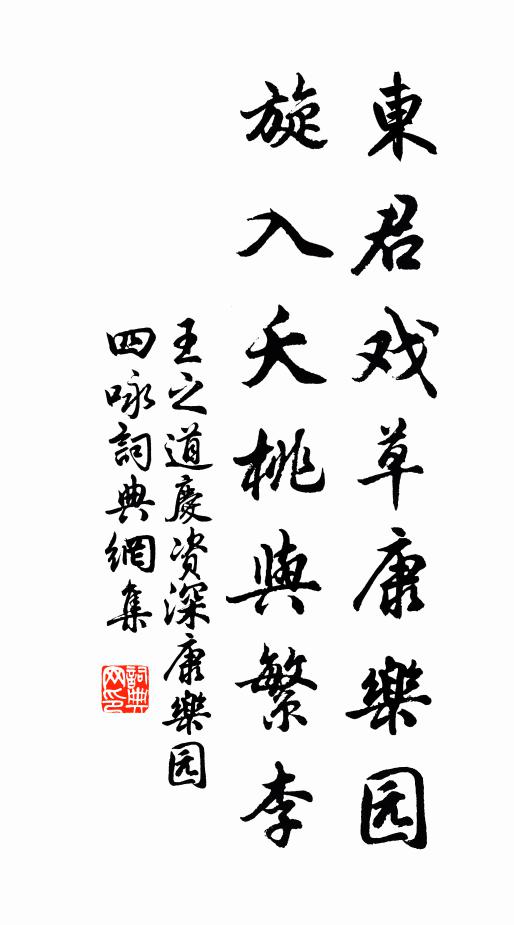 東君戏草康樂园
旋入夭桃與繁李
王之道慶资深康樂园
四咏詞典網集
詞典網印